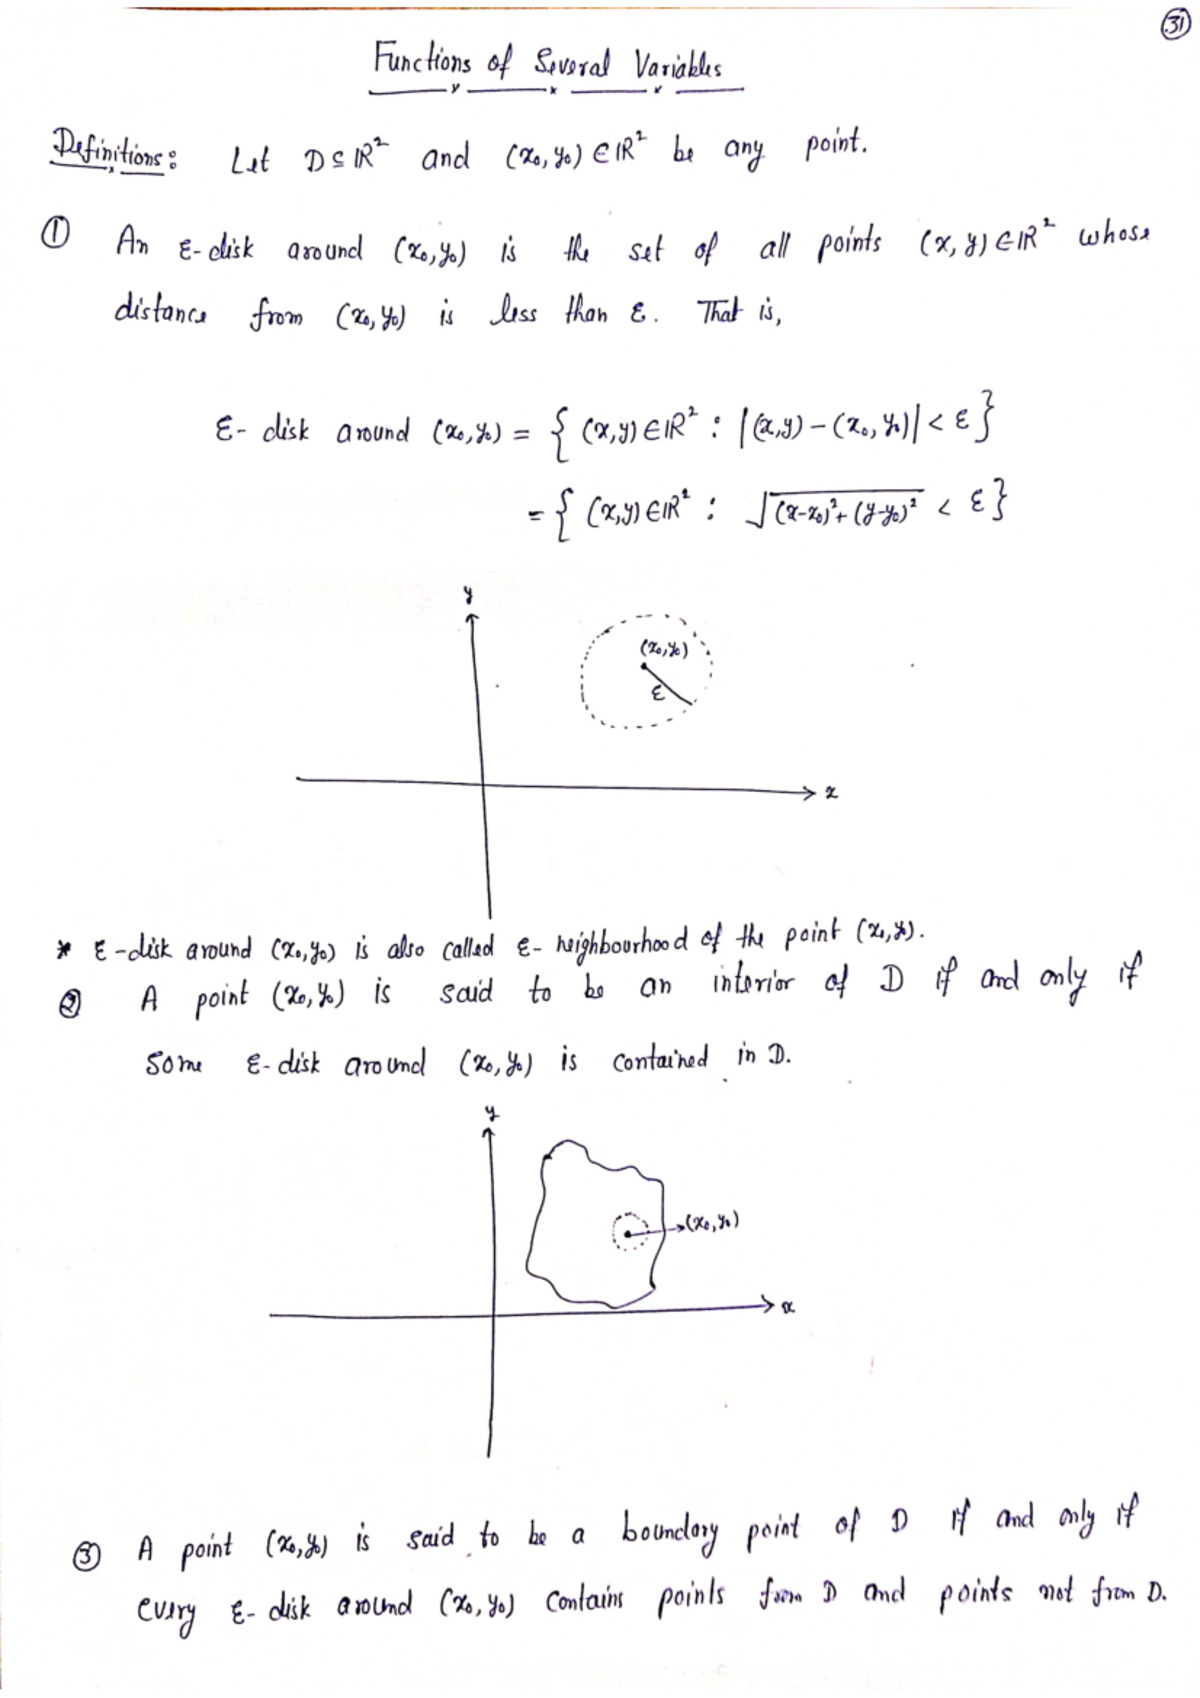 31
Functions of Several Variables
Definitions: Let D ⊆ ℝ² and (x₀, y₀) ∈ ℝ² be any point.
① An ε-disk around (x₀, y₀) is the set of all points (x, y) ∈ ℝ² whose
distance from (x₀, y₀) is less than ε. That is,
ε- disk around (x₀, y₀) = { (x,y) ∈ ℝ² : |(x,y) – (x₀, y₀)| < ε }
= { (x,y) ∈ ℝ² : √((x-x₀)² + (y-y₀)²) < ε }
y
(x₀, y₀)
ε
x
* ε-disk around (x₀, y₀) is also called ε- neighbourhood of the point (x₀, y₀).
② A point (x₀, y₀) is said to be an interior of D if and only if
some ε-disk around (x₀, y₀) is contained in D.
y
(x₀, y₀)
x
③ A point (x₀, y₀) is said to be a boundary point of D if and only if
every ε- disk around (x₀, y₀) contains points from D and points not from D.